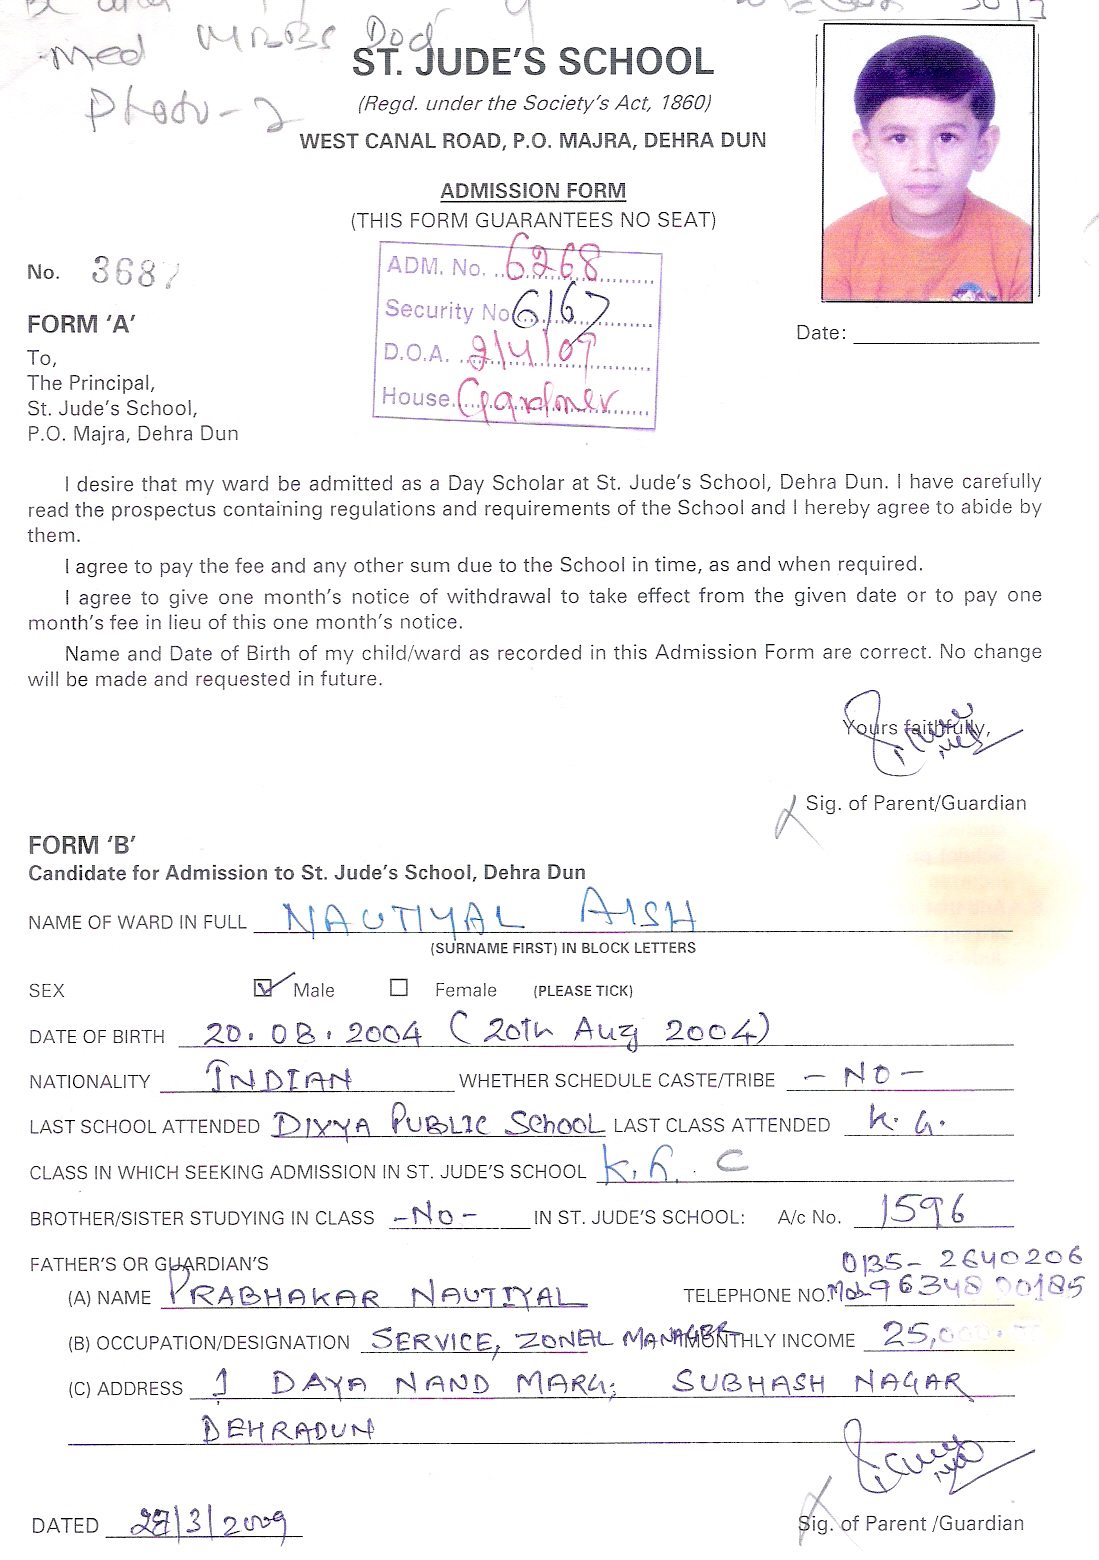 Med MBBS Doc
Photo-2
ST. JUDE'S SCHOOL
(Regd. under the Society's Act, 1860)
WEST CANAL ROAD, P.O. MAJRA, DEHRA DUN
ADMISSION FORM
(THIS FORM GUARANTEES NO SEAT)
No. 3687
ADM. No. 6268
Security No 6167
D.O.A. 2/4/09
House Gardner
Date:
FORM 'A'
To,
The Principal,
St. Jude's School,
P.O. Majra, Dehra Dun
I desire that my ward be admitted as a Day Scholar at St. Jude's School, Dehra Dun. I have carefully
read the prospectus containing regulations and requirements of the School and I hereby agree to abide by
them.
I agree to pay the fee and any other sum due to the School in time, as and when required.
I agree to give one month's notice of withdrawal to take effect from the given date or to pay one
month's fee in lieu of this one month's notice.
Name and Date of Birth of my child/ward as recorded in this Admission Form are correct. No change
will be made and requested in future.
Yours faithfully,
Sig. of Parent/Guardian
FORM 'B'
Candidate for Admission to St. Jude's School, Dehra Dun
NAME OF WARD IN FULL NAUTIYAL AISH
(SURNAME FIRST) IN BLOCK LETTERS
SEX Male Female (PLEASE TICK)
DATE OF BIRTH 20.08.2004 (20th Aug 2004)
NATIONALITY INDIAN WHETHER SCHEDULE CASTE/TRIBE - NO -
LAST SCHOOL ATTENDED DIVYA PUBLIC SCHOOL LAST CLASS ATTENDED K.G.
CLASS IN WHICH SEEKING ADMISSION IN ST. JUDE'S SCHOOL K.G. C
BROTHER/SISTER STUDYING IN CLASS -No- IN ST. JUDE'S SCHOOL: A/c No. 1596
FATHER'S OR GUARDIAN'S 0135-2640206
(A) NAME PRABHAKAR NAUTIYAL TELEPHONE NO. Mob 96348 00185
(B) OCCUPATION/DESIGNATION SERVICE, ZONEL MANAGER MONTHLY INCOME 25,000
(C) ADDRESS 1 DAYA NAND MARG; SUBHASH NAGAR
DEHRADUN
DATED 28/3/2009
Sig. of Parent /Guardian